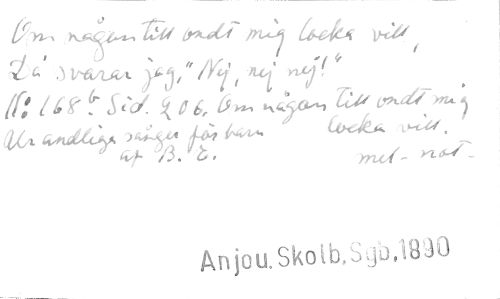 Om någon till ondt mig locka vill,
Då svarar jag, "Nej, nej nej!"
No 168 b. Sid. 206. Om någon till ondt mig
locka vill.
Ur andliga sånger för barn
af B. E.
mel- not-
Anjou. Skolb, Sgb, 1890